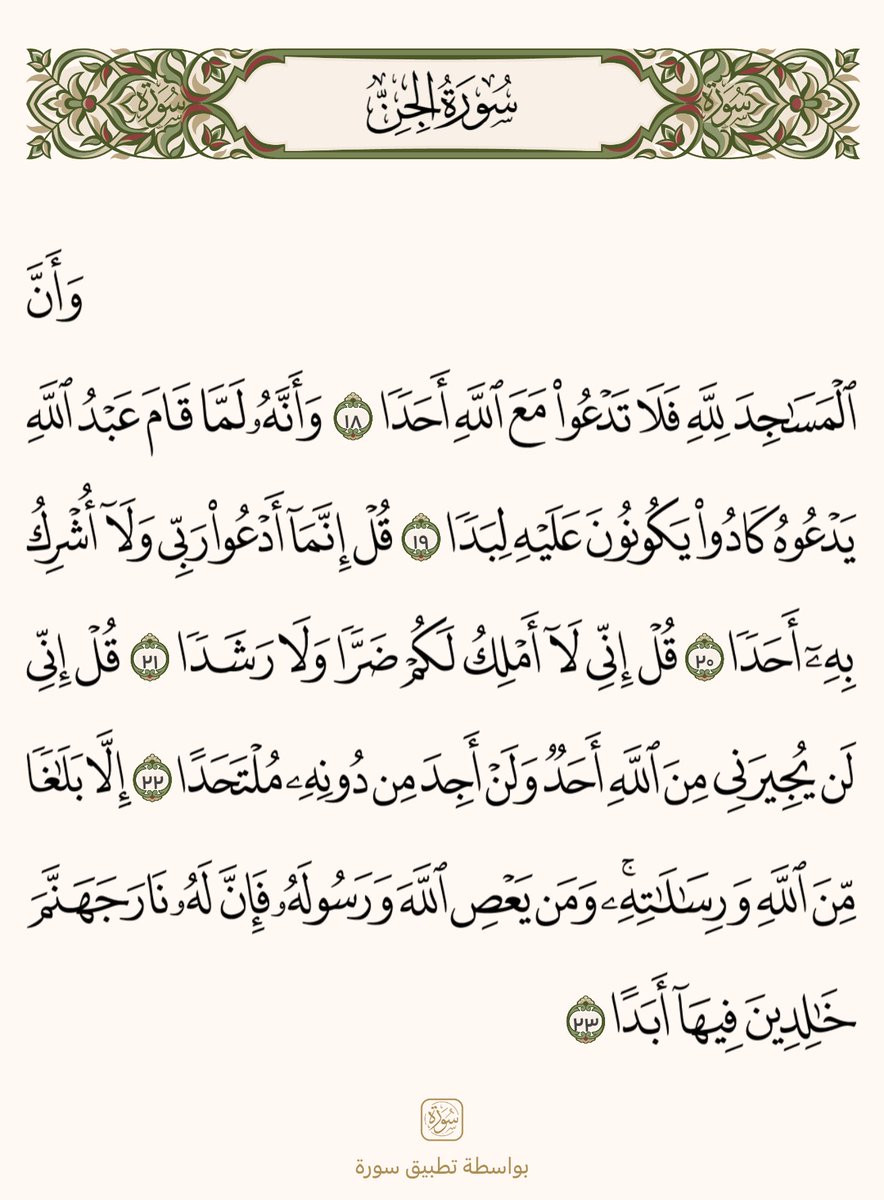 سُورَةُ الجِنِّ
سورة
سورة
وَأَنَّ
ٱلْمَسَـٰجِدَ لِلَّهِ فَلَا تَدْعُوا۟ مَعَ ٱللَّهِ أَحَدًا ١٨ وَأَنَّهُۥ لَمَّا قَامَ عَبْدُ ٱللَّهِ
يَدْعُوهُ كَادُوا۟ يَكُونُونَ عَلَيْهِ لِبَدًا ١٩ قُلْ إِنَّمَآ أَدْعُوا۟ رَبِّى وَلَآ أُشْرِكُ
بِهِۦٓ أَحَدًا ٢٠ قُلْ إِنِّى لَآ أَمْلِكُ لَكُمْ ضَرًّا وَلَا رَشَدًا ٢١ قُلْ إِنِّى
لَن يُجِيرَنِى مِنَ ٱللَّهِ أَحَدٌ وَلَنْ أَجِدَ مِن دُونِهِۦ مُلْتَحَدًا ٢٢ إِلَّا بَلَـٰغًا
مِّنَ ٱللَّهِ وَرِسَـٰلَـٰتِهِۦ ۚ وَمَن يَعْصِ ٱللَّهَ وَرَسُولَهُۥ فَإِنَّ لَهُۥ نَارَ جَهَنَّمَ
خَـٰلِدِينَ فِيهَآ أَبَدًا ٢٣
سورة
بواسطة تطبيق سورة